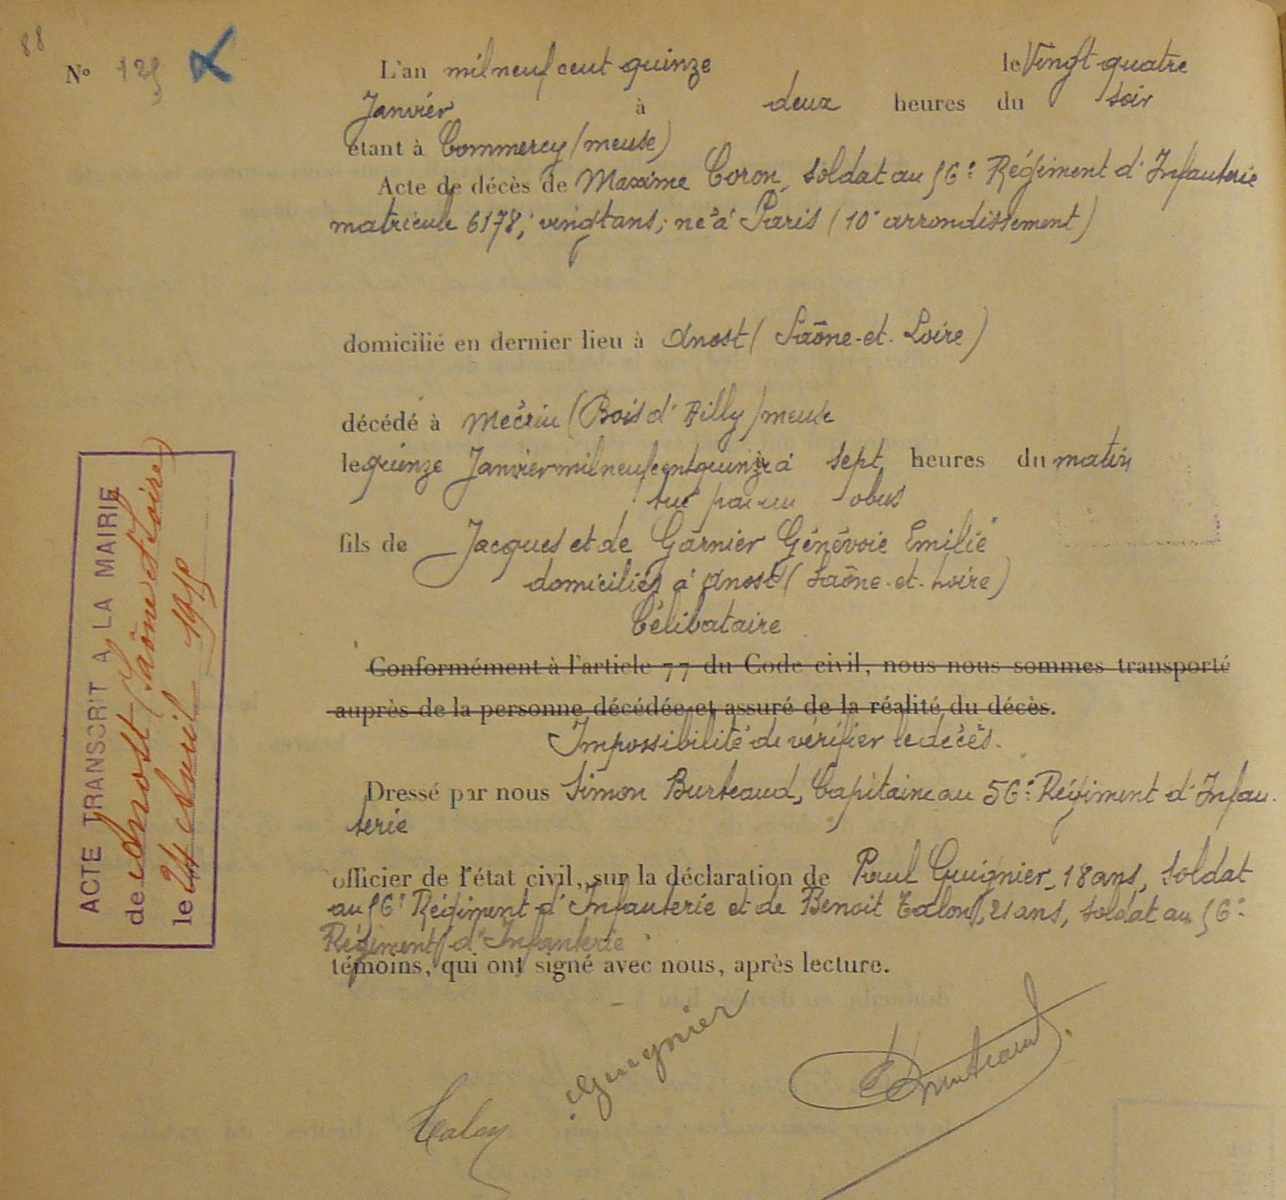 88
N° 125
L'an mil neuf cent quinze le Vingt quatre
Janvier à deux heures du soir
étant à Commercy (meuse)
Acte de décès de Maxime Coron, soldat au 56e Régiment d'Infanterie
matricule 6178; vingt ans; né à Paris (10e arrondissement)
domicilié en dernier lieu à Anost (Saône-et-Loire)
décédé à Mécrin (Bois d'Ailly) meuse
le quinze Janvier mil neuf cent quinze à sept heures du matin
tué par un obus
fils de Jacques et de Garnier Génévoie Emilie
domiciliés à Anost (Saône-et-Loire)
Célibataire
Conformément à l'article 77 du Code civil, nous nous sommes transporté
auprès de la personne décédée et assuré de la réalité du décès.
Impossibilité de vérifier le décès.
Dressé par nous Simon Burteaud, Capitaine au 56e Régiment d'Infan-
terie
officier de l'état civil, sur la déclaration de Paul Guignier, 18 ans, soldat
au 56e Régiment d'Infanterie et de Benoit Talon, 21 ans, soldat au 56e
Régiment d'Infanterie
témoins, qui ont signé avec nous, après lecture.
Guignier
Burteaud
Talon
ACTE TRANSCRIT A LA MAIRIE
de Anost (Saône et Loire)
le 24 Avril 1915